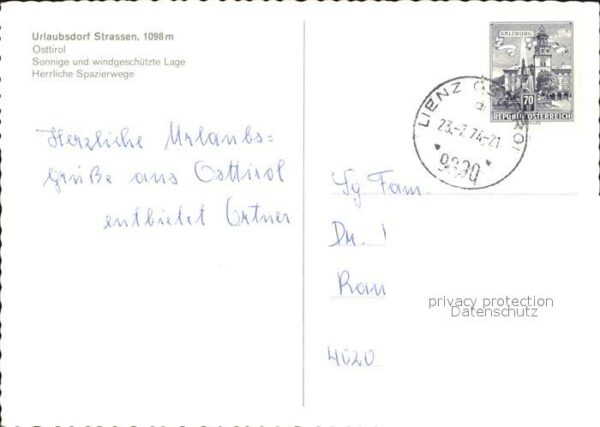 Urlaubsdorf Strassen, 1098 m
Osttirol
Sonnige und windgeschützte Lage
Herrliche Spazierwege
Herzliche Urlaubs=
grüße aus Osttirol
entbietet Ortner
SALZBURG
70
REPUBLIK ÖSTERREICH
LIENZ OSTTIROL
a
23.-7.74-21
9900
Sg Fam.
Dr.
Ran
4020
privacy protection
Datenschutz